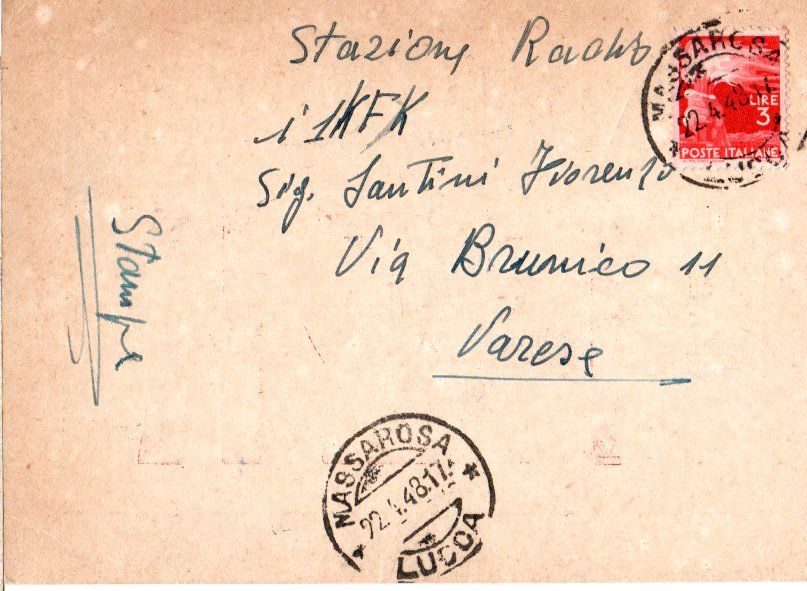 Stazione Radio
i1KFK
Sig. Santini Fiorenzo
Via Brunico 11
Varese
Stampe
MASSAROSA
22.4.48.17
LUCCA
LIRE
3
POSTE ITALIANE
MASSAROSA
22.4.48.17
LUCCA